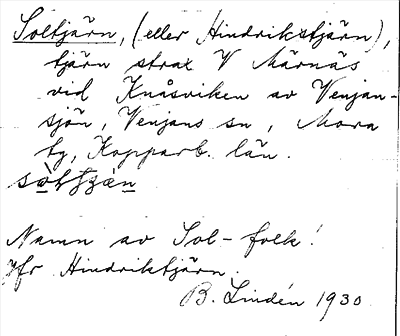 Soltjärn, (eller Hindrikstjärn),
tjärn strax V Märnäs
vid Knåsviken av Venjan-
sjön, Venjans sn, Mora
tg, Kopparb. län.
Namn av Sol-folk!
Jfr Hindriktjärn.
B. Lindén 1930.